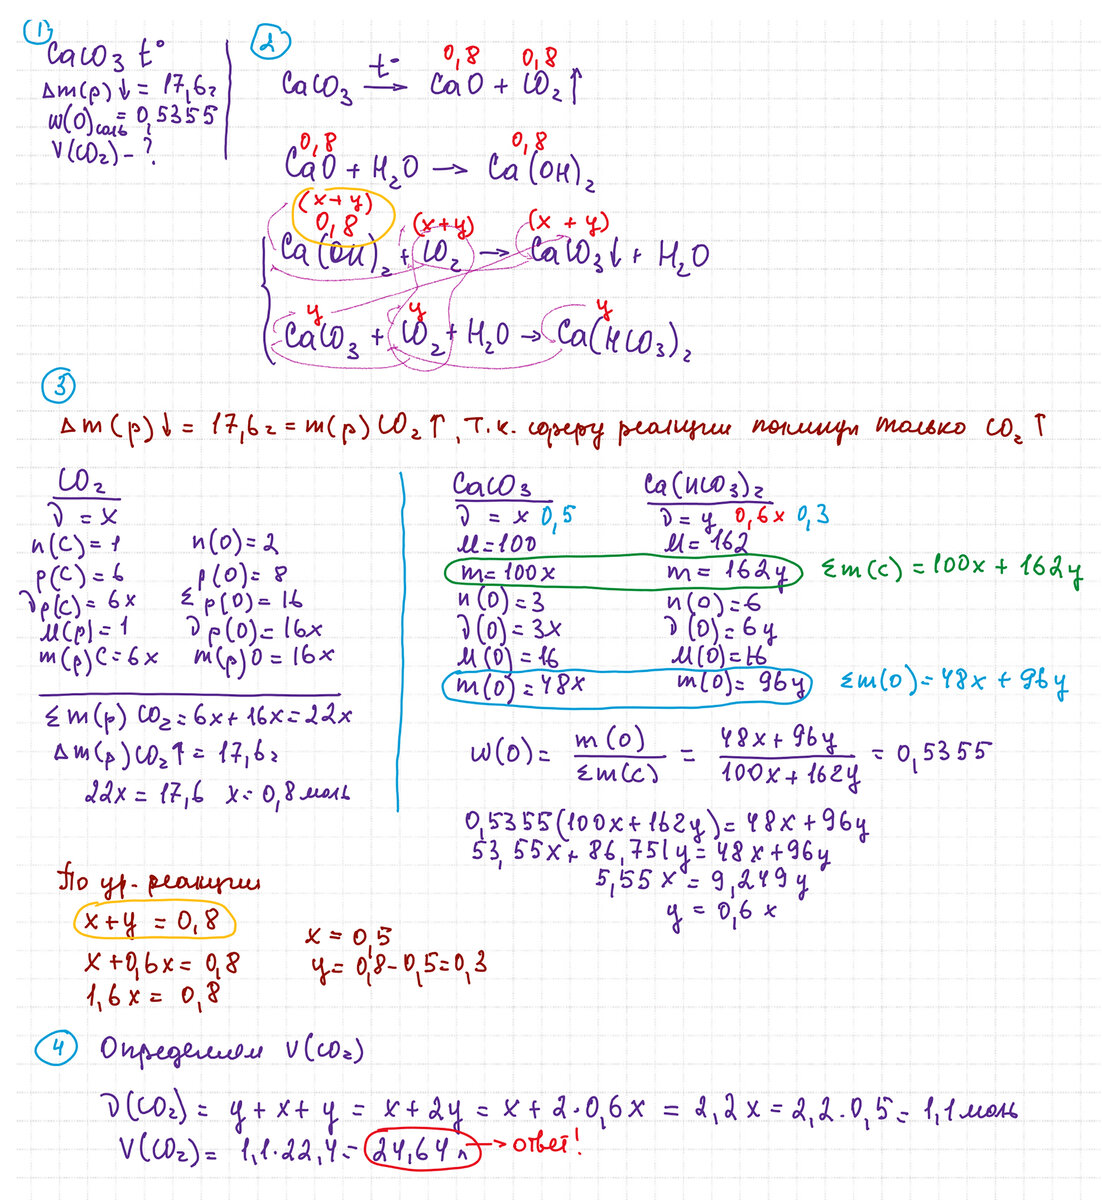 1
CaCO3 t°
Δm(p)↓ = 17,6г
w(O)соль = 0,5355
V(CO2) - ?
2
0,8 0,8
CaCO3 t° → CaO + CO2↑
0,8 0,8
CaO + H2O → Ca(OH)2
(x+y)
0,8 (x+y) (x + y)
Ca(OH)2 + CO2 → CaCO3↓ + H2O
y y y
CaCO3 + CO2 + H2O → Ca(HCO3)2
3
Δm(p)↓ = 17,6г = m(p) CO2↑, т.к. сферу реакции покинул только CO2↑
CO2
ν = x
n(C)=1 n(O)=2
p(C)=6 p(O)=8
νp(C)=6x Σp(O)=16
M(p)=1 νp(O)=16x
m(p)C=6x m(p)O=16x
Σm(p) CO2=6x+16x=22x
Δm(p)CO2↑=17,6г
22x=17,6 x=0,8 моль
CaCO3 Ca(HCO3)2
ν = x 0,5 ν = y 0,6x 0,3
M=100 M=162
m=100x m=162y Σm(c)=100x+162y
n(O)=3 n(O)=6
ν(O)=3x ν(O)=6y
M(O)=16 M(O)=16
m(O)=48x m(O)=96y Σm(O)=48x+96y
w(O)= m(O)/Σm(c) = 48x+96y/100x+162y = 0,5355
0,5355(100x+162y)=48x+96y
53,55x+86,751y=48x+96y
5,55x=9,249y
y=0,6x
По ур. реакции
x+y=0,8
x+0,6x=0,8
1,6x=0,8
x=0,5
y=0,8-0,5=0,3
4 Определяем V(CO2)
ν(CO2)= y+x+y = x+2y = x+2·0,6x = 2,2x = 2,2·0,5 = 1,1 моль
V(CO2)= 1,1·22,4= 24,64 л → ответ!